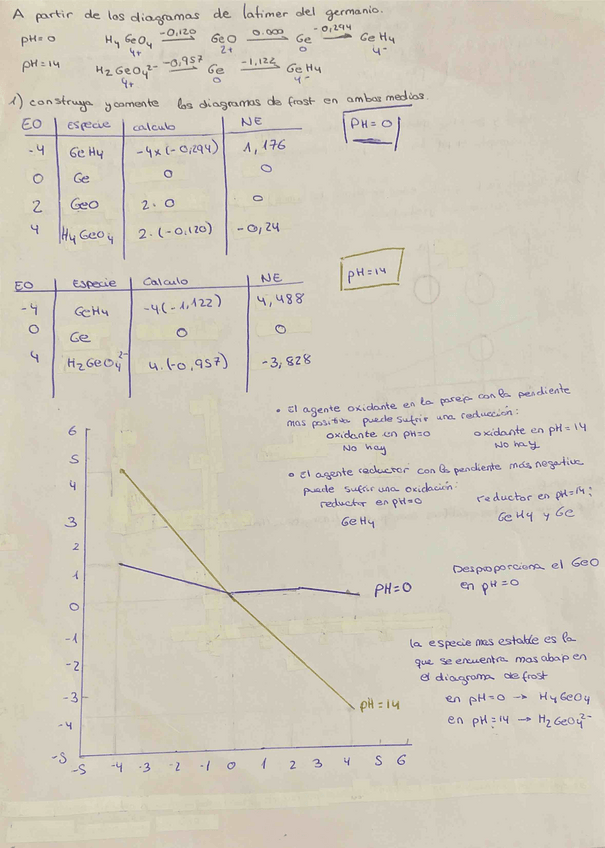 A partir de los diagramas de latimer del germanio.
pH=0 H4 GeO4 -0,120 GeO 0.000 Ge -0,294 GeH4
4+ 2+ 0 4-
pH=14 H2GeO4 2- -0,957 Ge -1,122 GeH4
4+ 0 4-
1) construya y comente los diagramas de frost en ambos medios.
EO especie calculo NE
PH=0
-4 GeH4 -4x(-0,294) 1,176
0 Ge 0 0
2 GeO 2.0 0
4 H4GeO4 2.(-0,120) -0,24
EO Especie Calculo NE
pH=14
-4 GeH4 -4(-1,122) 4,488
0 Ge 0 0
4 H2GeO4 2- 4.(-0,957) -3,828
• El agente oxidante en la pareja con la pendiente
mas positiva puede sufrir una reducción:
oxidante en pH=0 oxidante en pH=14
No hay No hay
• El agente reductor con la pendiente más negativa
puede sufrir una oxidación:
reductor en pH=0 reductor en pH=14:
GeH4 GeH4 y Ge
Desproporciona el GeO
en pH=0
la especie mas estable es la
que se encuentra mas abajo en
el diagrama de frost
en pH=0 → H4GeO4
en pH=14 → H2GeO4 2-
6
5
4
3
2
1
0
-1
-2
-3
-4
-5
PH=0
pH=14
-5 -4 -3 -2 -1 0 1 2 3 4 5 6